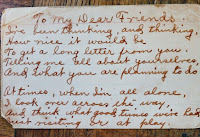 To My Dear Friends
I've been thinking, and thinking,
How nice it would be
To get a long letter from you,
Telling me all about yourselves,
And, what you are planning to do
At times, when I'm all alone,
I look over across the way,
And think what good times we've had
at visiting or at play.